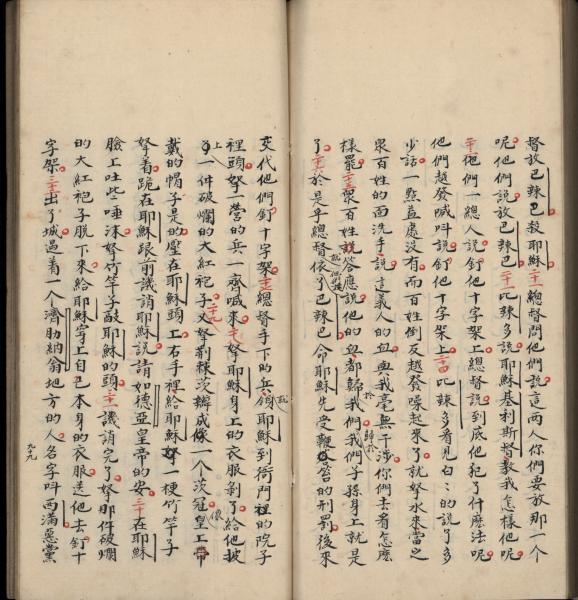 督放巴辣巴殺耶穌二十一總督問他們說這两人你們要放那一个
呢他們說放巴辣巴二十二比辣多說耶穌基利斯督教我怎樣他呢
二十三他們一總人說釘他十字架上總督說到底他犯了什麽法呢
他們越發喊呌說釘他十字架上二十四比辣多看見白白的說了多
少話一點益處没有而百姓倒反越發噪起來了就拏水來當之
衆百姓的面洗手說這義人的血與我毫無干涉你們去看怎麽
樣罷二十五衆百姓說答應說他的血都歸我們我們子孫身上就是
了二十六於是乎總督依了巴辣巴命耶穌先受鞭笞的刑罰後來
交代他們釘十字架二十七總督手下的兵領耶穌到衙門裡的院子
裡頭拏一營的兵一齊喊來二十八拏耶穌身上的衣服剝了給他披
上一件破爛的大紅袍子二十九又拏荆棘茨辮成一个茨冠像皇上帝
戴的帽子是的壓在耶穌頭上右手裡給耶穌拏一梗竹竿子
拏着跪在耶穌跟前譏誚耶穌說請如德亞皇帝的安三十在耶穌
臉上吐些唾沫拏竹竿子敲耶穌的頭三十一譏誚完了拏那件破爛
的大紅袍子脫下來給耶穌穿上自己本身的衣服送他去釘十
字架三十二出了城遇着一个濟肋納翁地方的人名字呌西滿惡黨
九十九